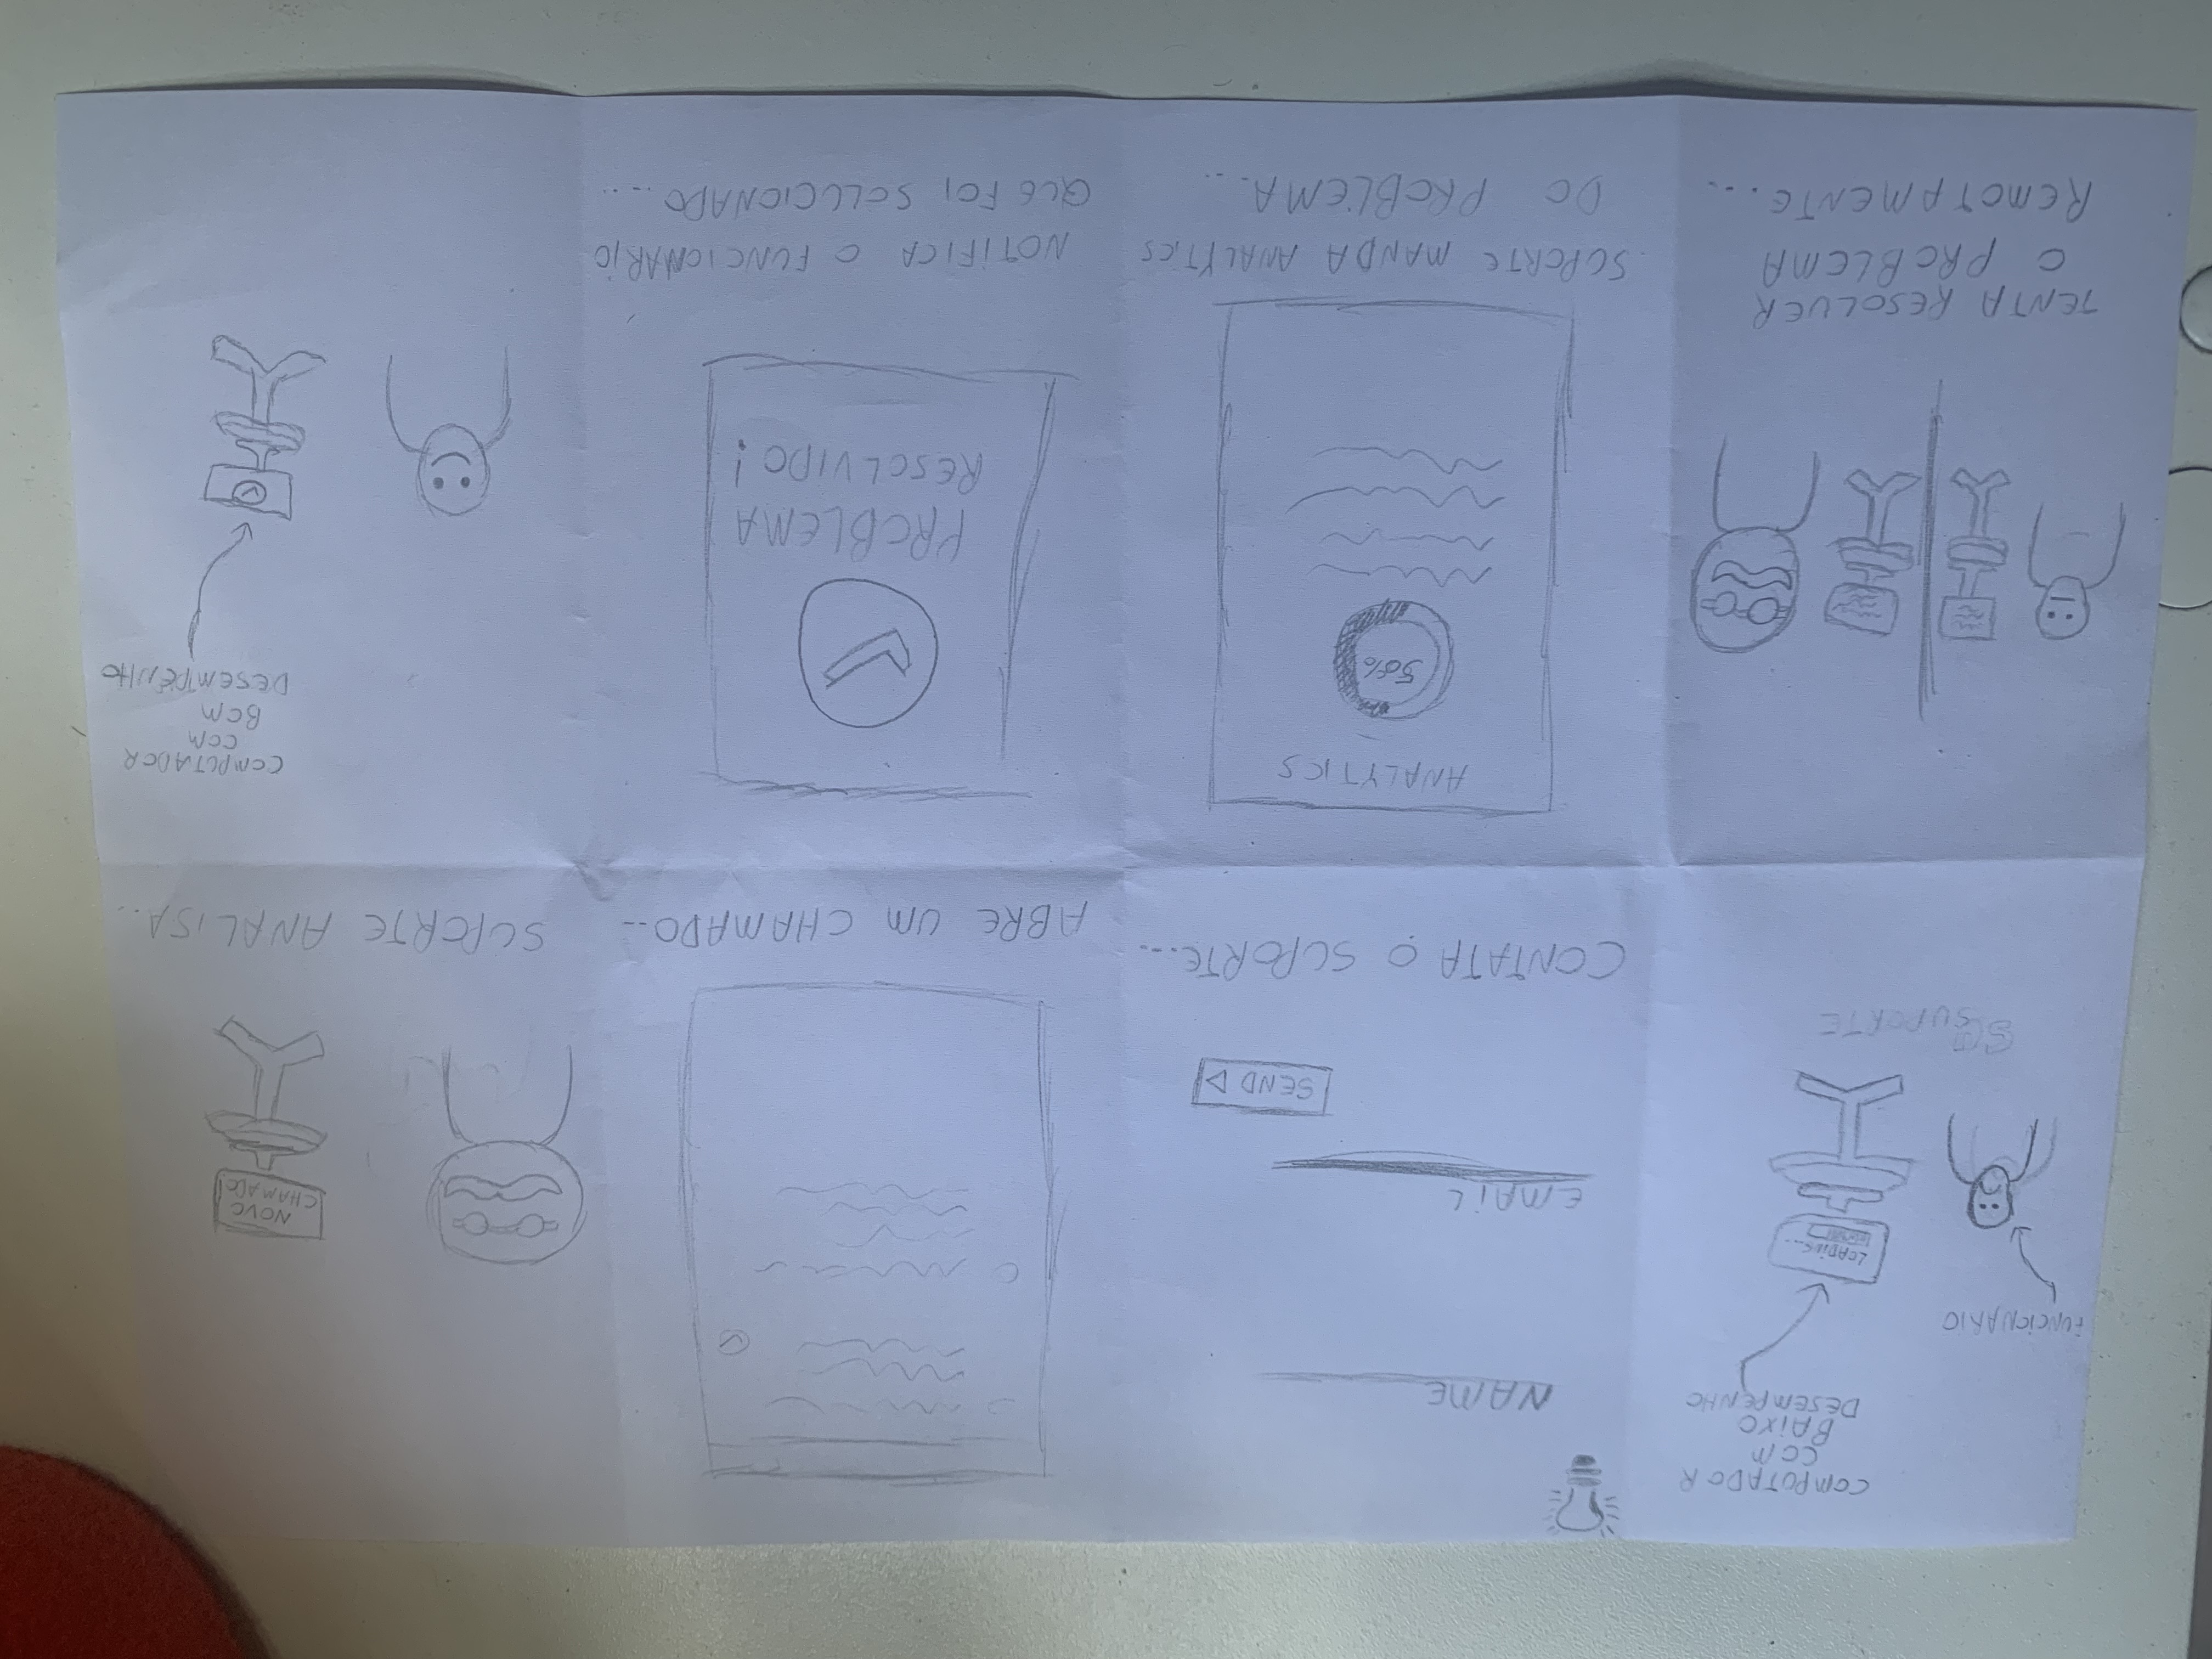 COMPUTADOR
COM
BAIXO
DESEMPENHO
FUNCIONARIO
LOADING...
SUPORTE
NAME
EMAIL
SEND
CONTATA O SUPORTE...
ABRE UM CHAMADO..
NOVO
CHAMADO!
SUPORTE ANALISA..
TENTA RESOLVER
O PROBLEMA
REMOTAMENTE...
ANALYTICS
50%
SUPORTE MANDA ANALYTICS
DO PROBLEMA...
PROBLEMA
RESOLVIDO!
NOTIFICA O FUNCIONARIO
QUE FOI SOLUCIONADO....
COMPUTADOR
COM
BOM
DESEMPENHO